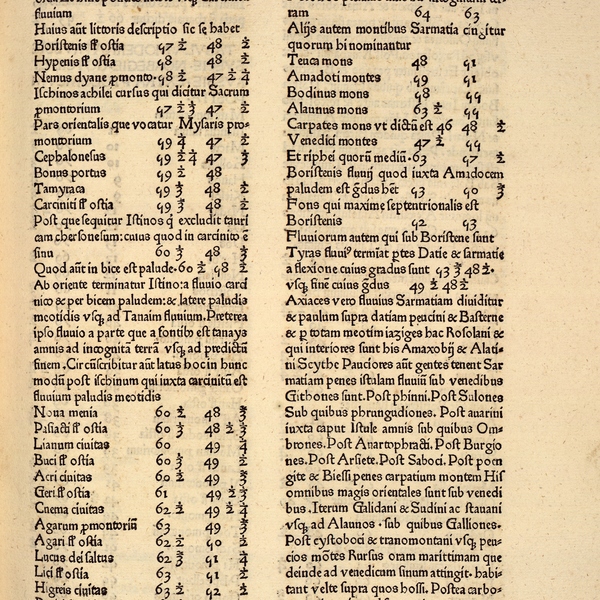 fluuium
Huius aūt littoris descriptio sic se habet
Boristenis fl ostia 47 ½ 48 ½
Hypenis fl ostia 48 48 ½
Nemus dyane ꝓmonto. 48 ½ 47 ½ ¼
Ischinos achilei cursus qui dicitur Sacrum
ꝓmontorium 47 ½ ⅓ 47 ½
Pars orientalis que vocatur Mysaris pro-
montorium 49 ¼ 47 ½
Cephalonesus 49 ½ ¼ 47
Bonus portus 49 ½ 48
Tamyraca 49 48
Carciniti fl ostia 49 48
Post que sequitur Istinos q̄ excludit tauri
cam chersonesum: cuius quod in carcinito ē
sinu 60 48
Quod aūt in bice est palude. 60 ½ 48 ½
Ab oriente terminatur Istino: a fluuio carci
nito & per bicem paludem: & latere paludis
meotidis vsq̨ ad Tanaim fluuium. Preterea
ipso fluuio a parte que a fontib9 est tanays
amnis ad incognitā terrā vsq̨ ad predictū
finem. Circūscribitur aūt latus hoc in hunc
modū post ischinum qui iuxta carcinitū est
fluuium paludis meotidis
Noua menia 60 ½ 48
Pasiacti fl ostia 60 48 ½
Lianum ciuitas 60 49
Buci fl ostia 60 49
Acri ciuitas 60 ½ 49
Geri fl ostia 61 49 ½
Cnema ciuitas 62 ½ 49 ½
Agarum ꝓmontoriū 63 49
Agari fl ostia 62 ½ 40 ½
Lucus dei saltus 62 41
Lici fl ostia 63 41
Higreis ciuitas 63 ½ 42 ½
ram 64 63
Alijs autem montibus Sarmatia cingitur
quorum hi nominantur
Teuca mons 48 41
Amadoti montes 49 41
Bodinus mons 48 44
Alaunus mons 63 ½ 44
Carpates mons vt dictū est 46 48 ½
Venedici montes 47 ½ 44
Et riphei quorū mediū. 63 47 ½
Boristenis fluuij quod iuxta Amadocem
paludem est ḡdus hēt 43 40
Fons qui maxime septentrionalis est
Boristenis 42 43
Fluuiorum autem qui sub Boristene sunt
Tyras fluui9 termīat ꝑtes Datie & sarmatie
a flexione cuius gradus sunt 43 48 ½.
vsq̨ finē cuius ḡdus 49 ½ 48 ½
Axiaces vero fluuius Sarmatiam diuiditur
& paulum supra datiam peucini & Basterne
& ꝑ totam meotim iaziges hac Rosolani &
qui interiores sunt his Amaxobij & Alati-
ni Scythe Pauciores aūt gentes tenent Sar
matiam penes istulam fluuiū sub venedibus
Githones sunt. Post phinni. Post Sulones
Sub quibus phrungudiones. Post auarini
iuxta caput Istule amnis sub quibus Om-
brones. Post Anartophracti. Post Burgio
nes. Post Arsiete. Post Saboci. Post pocn
gite & Biessi penes carpatium montem His
omnibus magis orientales sunt sub venedi
bus. Iterum Galidani & Sudini ac stauani
vsq̨ ad Alaunos. sub quibus Galliones.
Post cystoboci & tranomontani vsq̨ peu-
cios mōtes Rursus oram marittimam que
deinde ad venedicum sinum attingit. habi-
tant velte supra quos hossi. Postea carbo-